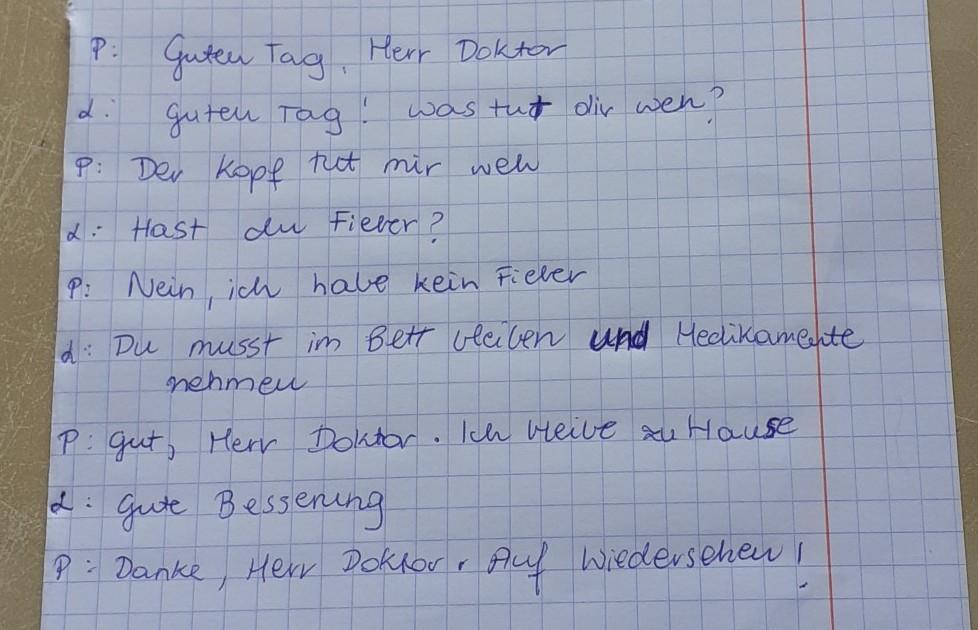 P: Guten Tag, Herr Doktor
d: Guten Tag! Was tut dir weh?
P: Der Kopf tut mir weh
d: Hast du Fieber?
P: Nein, ich habe kein Fieber
d: Du musst im Bett bleiben und Medikamente
nehmen
P: Gut, Herr Doktor. Ich bleibe zu Hause
d: Gute Besserung
P: Danke, Herr Doktor. Auf Wiedersehen!